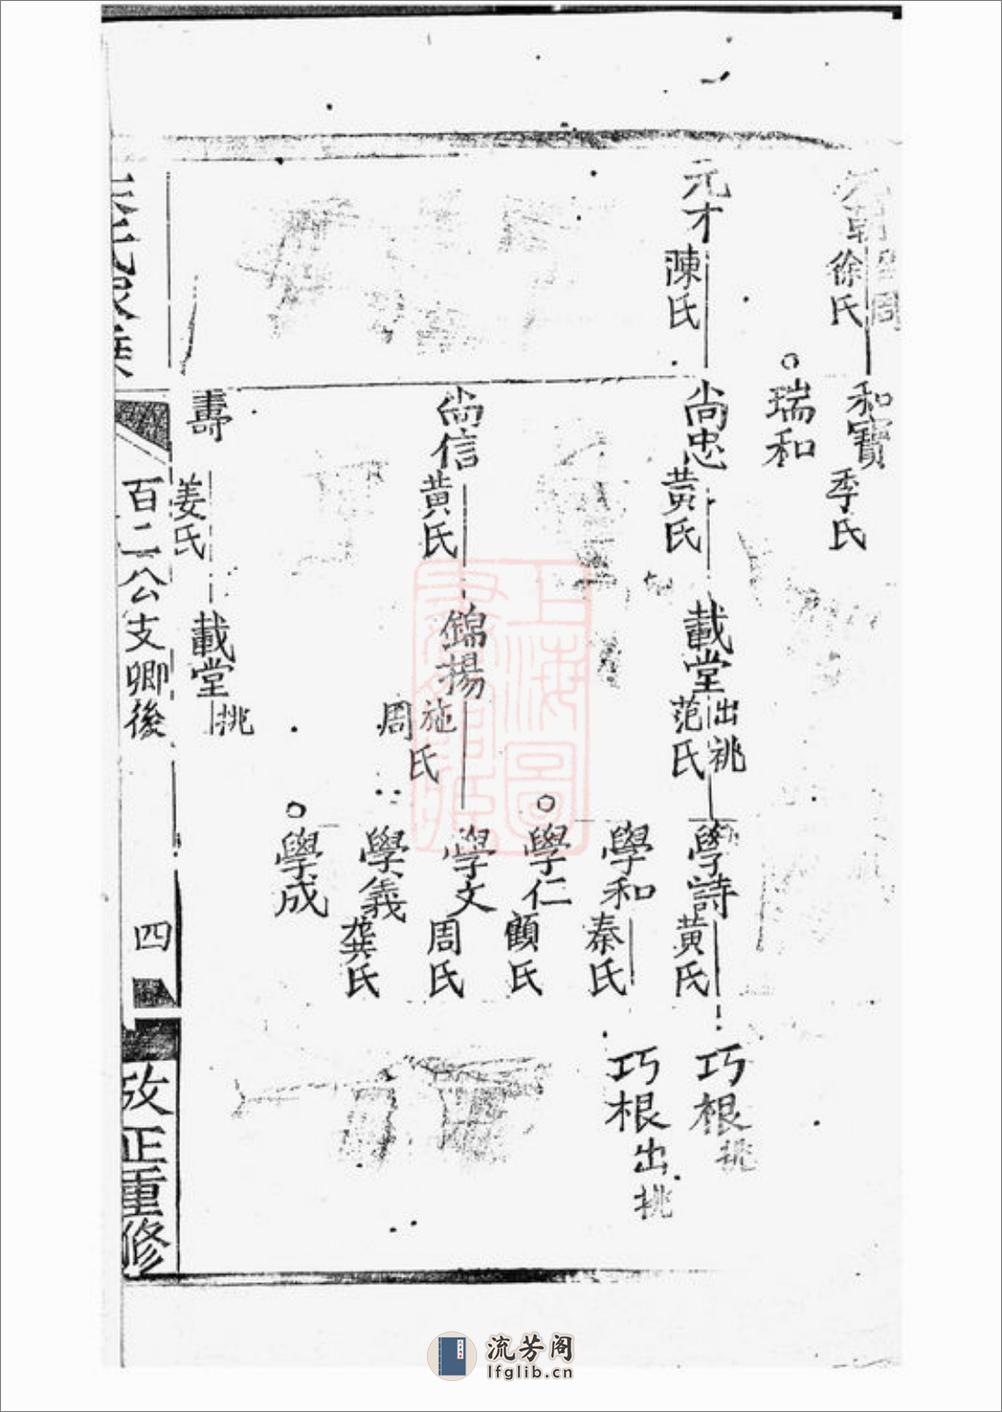 元朝
徐氏
和寶
季氏
瑞和
元才
陳氏
尚忠
黃氏
載堂
出祧
范氏
學詩
黃氏
巧根
挑
學和
秦氏
巧根
出
挑
學仁
顧氏
尚信
黃氏
錦揚
施氏
周
學文
周氏
學義
龔氏
學成
壽
姜氏
載堂
挑
氏家乘
百二公支卿後
四
攷正重修
上海圖書館藏
流芳阁
lfglib.cn